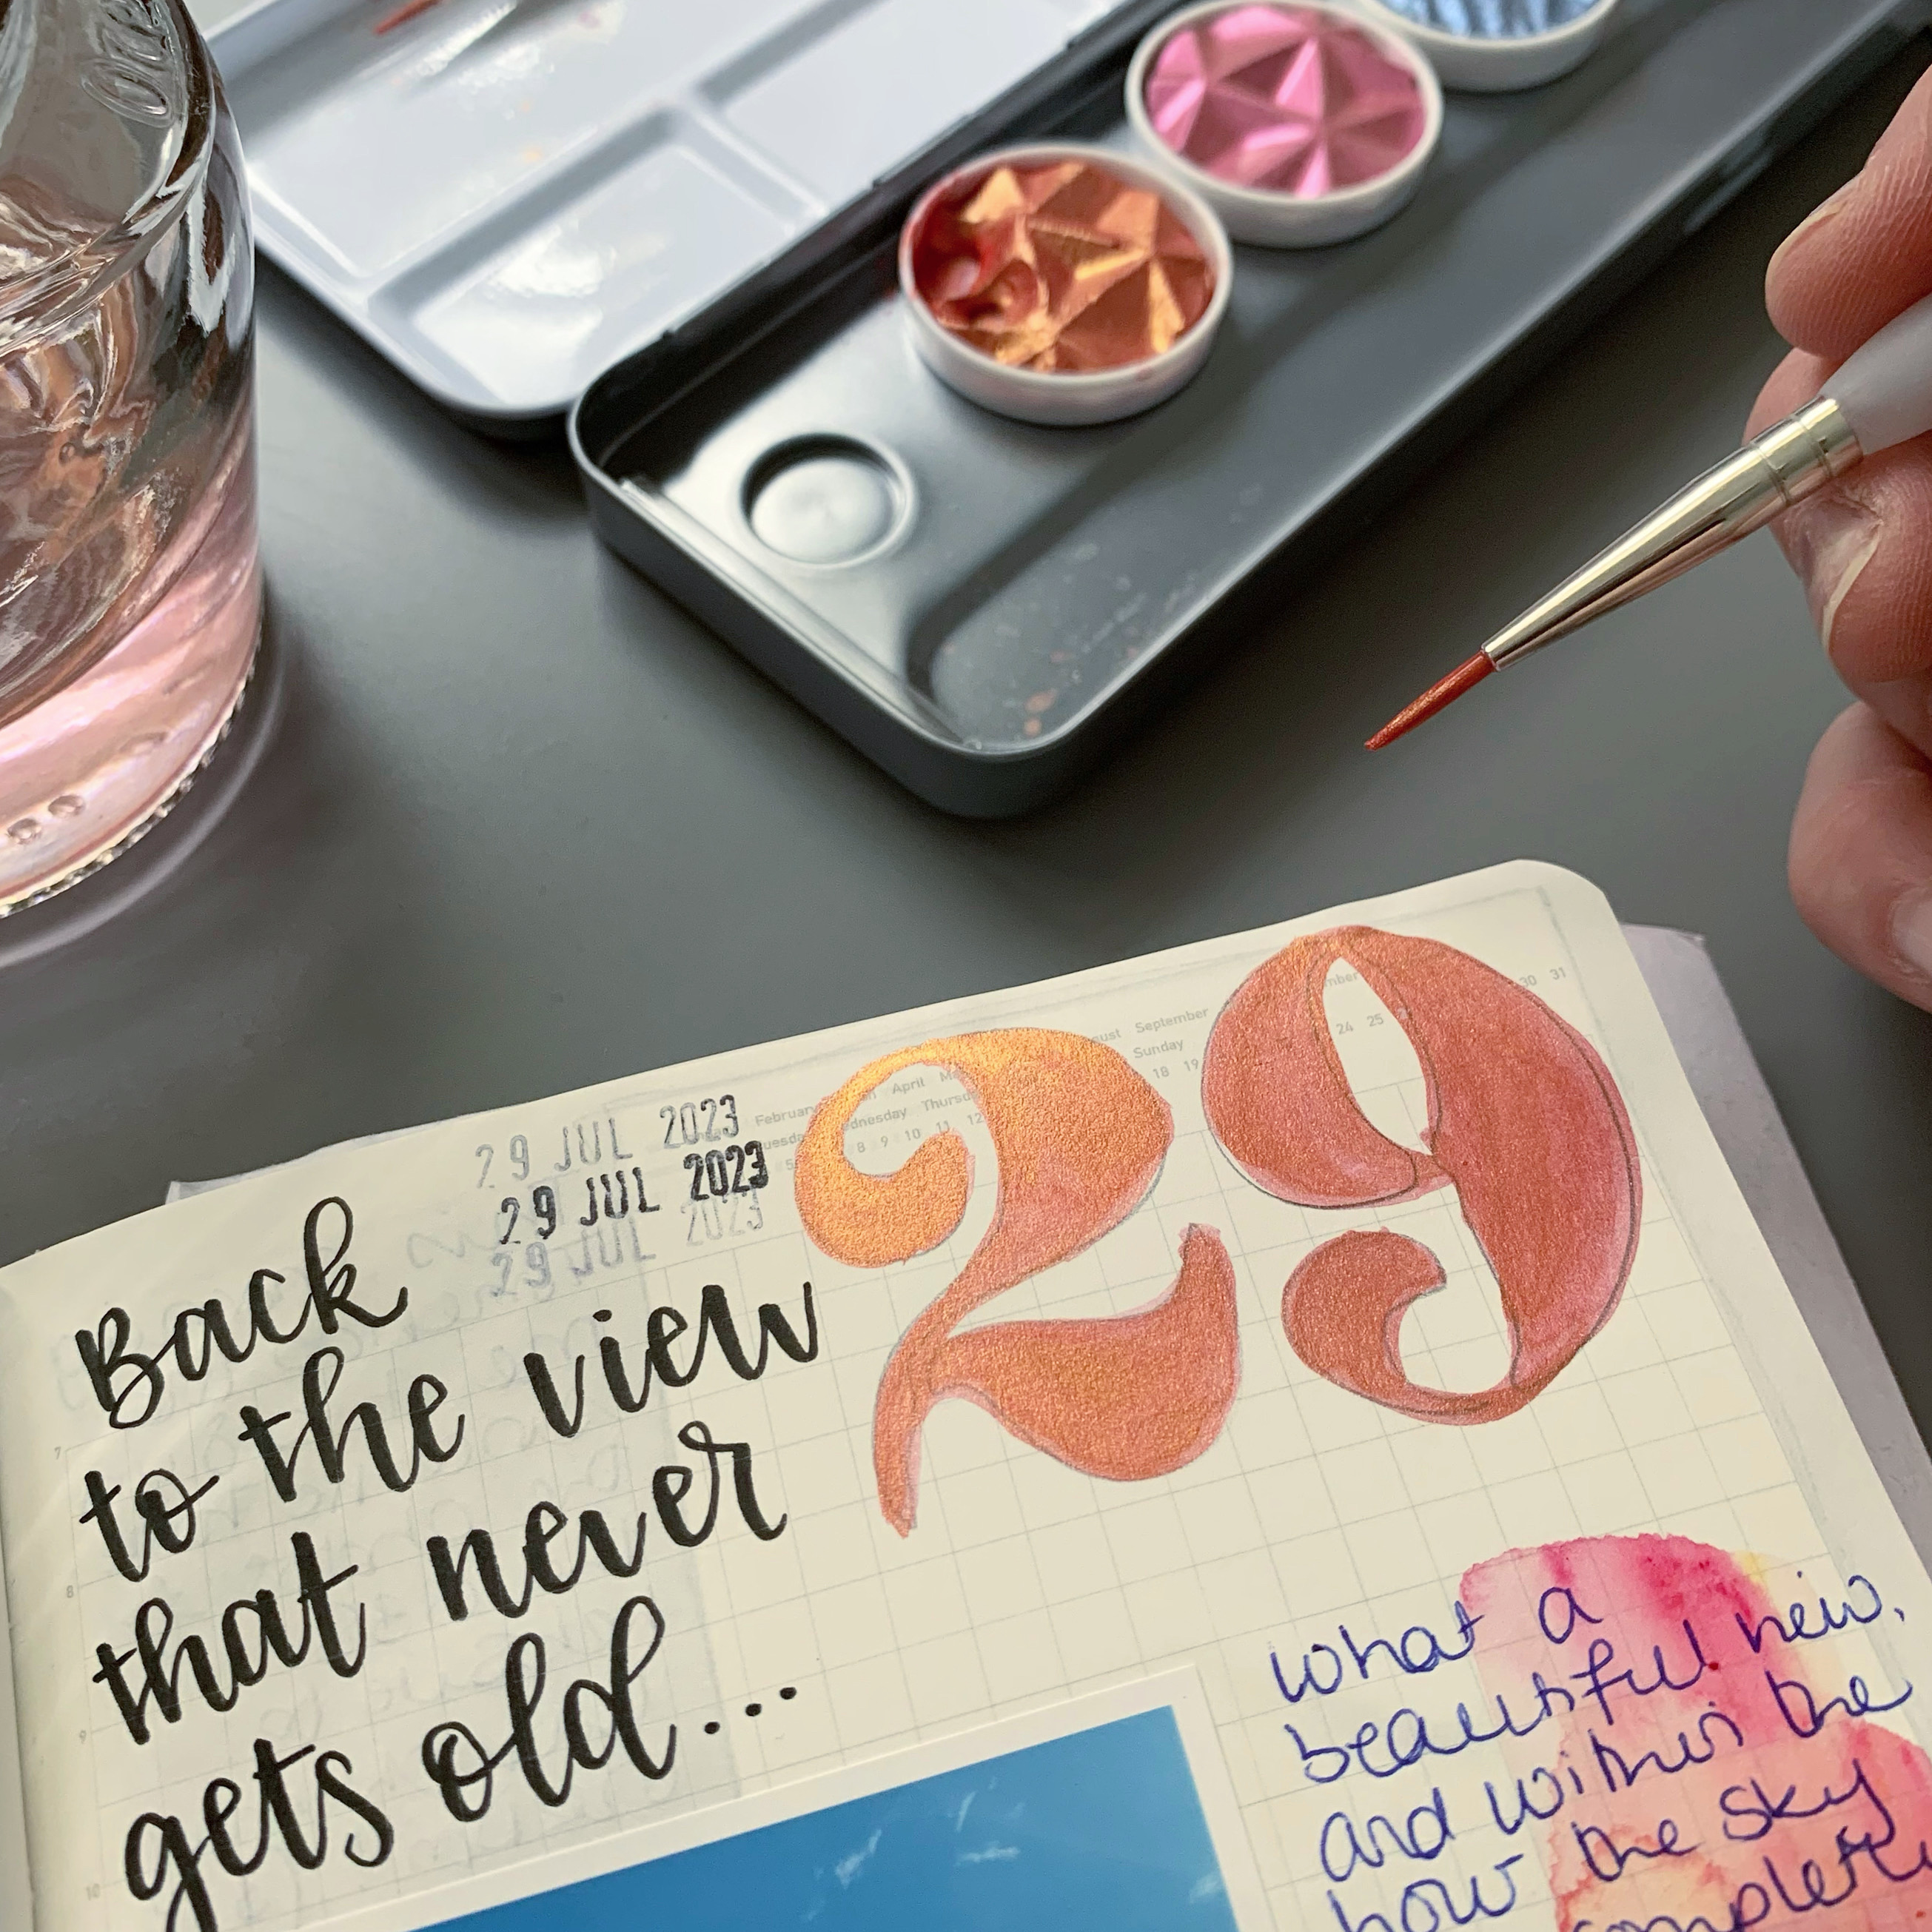 29 JUL 2023
29 JUL 2023
29 JUL 2023
29
February April September
Sunday
8 9 10 11 12 18 19 24 25 30 31
Back
to the view
that never
gets old...
7
8
9
10
what a
beautiful new,
and within the
how the sky